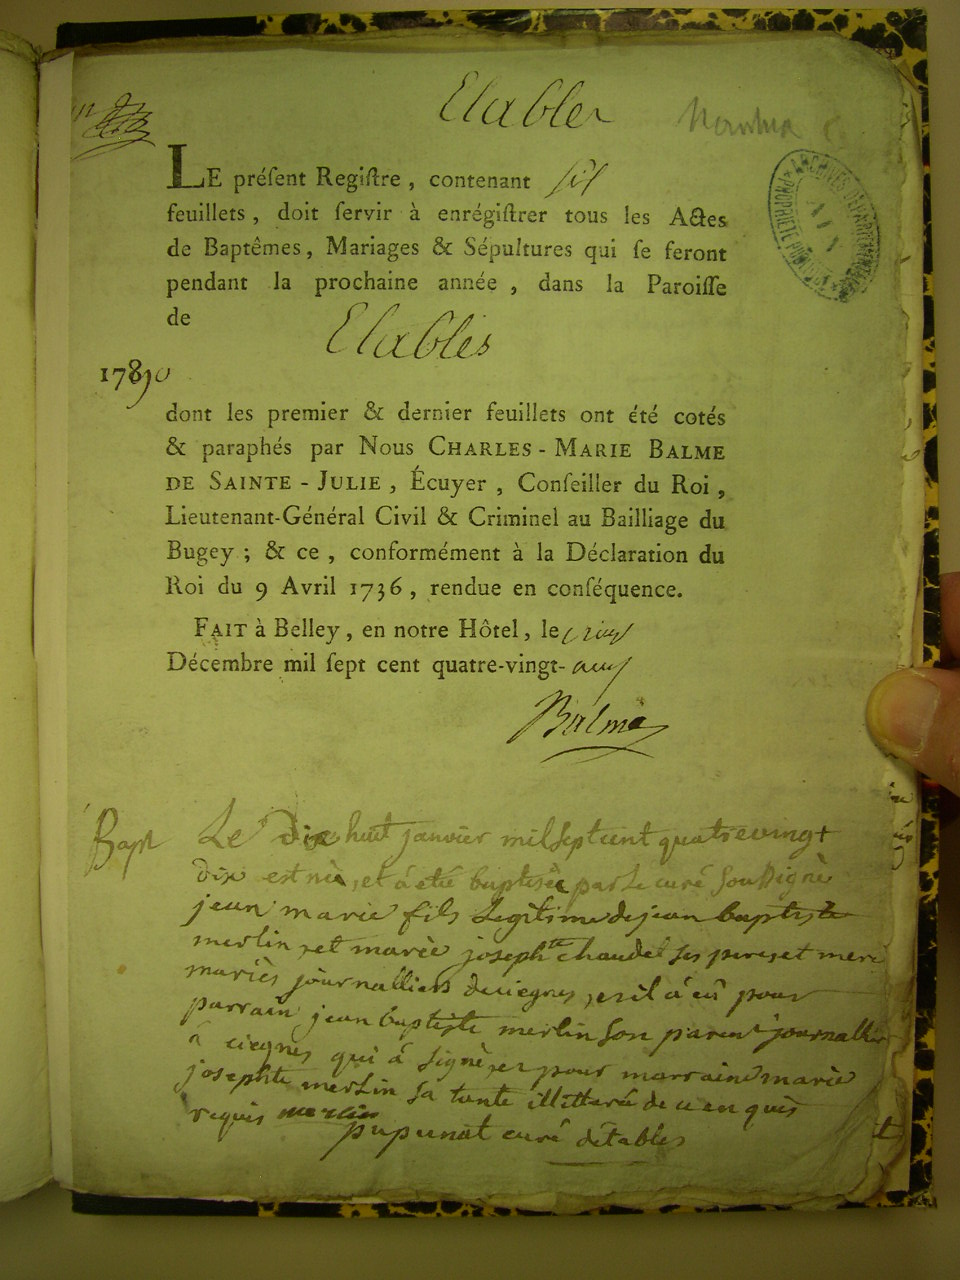 Etables
LE préſent Regiſtre, contenant six
feuillets, doit ſervir à enrégiſtrer tous les Actes
de Baptêmes, Mariages & Sépultures qui ſe feront
pendant la prochaine année, dans la Paroiſſe
de Etables
1790
dont les premier & dernier feuillets ont été cotés
& paraphés par Nous CHARLES-MARIE BALME
DE SAINTE-JULIE, Écuyer, Conſeiller du Roi,
Lieutenant-Général Civil & Criminel au Bailliage du
Bugey ; & ce, conformément à la Déclaration du
Roi du 9 Avril 1736, rendue en conſéquence.
FAIT à Belley, en notre Hôtel, le cinq
Décembre mil ſept cent quatre-vingt-neuf
Balme
Bapt Le Dix huit janvier mil sept cent quatre vingt
dix est nè, et á eté baptisè par Le curé Soussignè
jean marie fils Legitime de jean baptiste
merlin, et marie josephte chaudet ses peres et mere
mariès journalliers de ciegnes, et il á eû pour
parrain jean baptiste merlin Son parent journallier
â ciegnes qui á signè, et pour marraine marie
josephte merlin sa tante illitteré de ce enquis
requis merlin
pupunat curé détables
ARCHIVES DEPARTEMENTALES
AIN
PROPRIETE PUBLIQUE